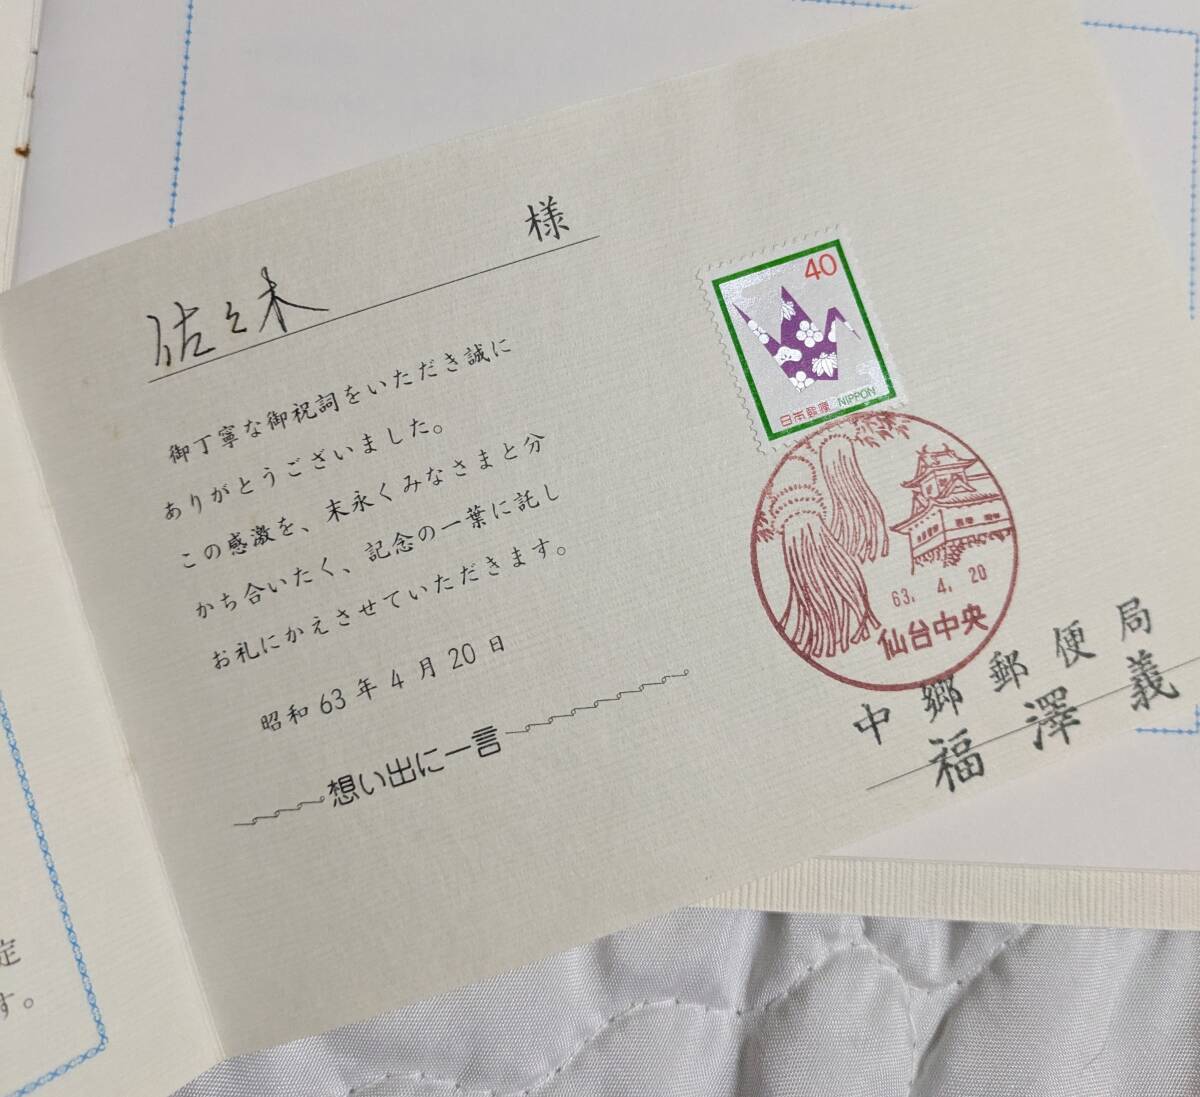 佐々木 様
御丁寧な御祝詞をいただき誠に
ありがとうございました。
この感激を、末永くみなさまと分
かち合いたく、記念の一葉に託し
お礼にかえさせていただきます。
昭和63年4月20日
想い出に一言
40
日本郵便 NIPPON
63.4.20
仙台中央
中郷郵便局
福澤義
定
す。